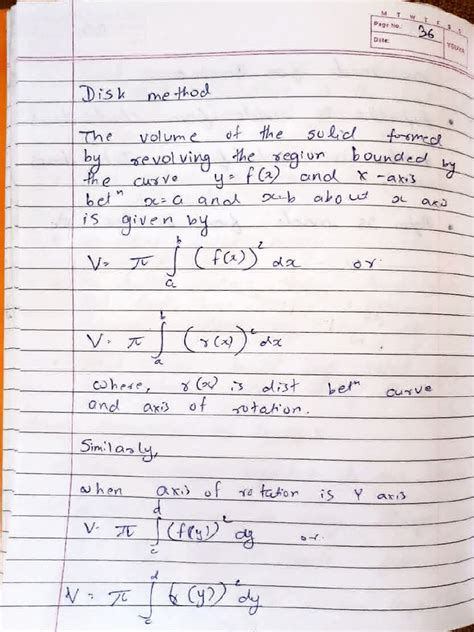 M T W T F S S
Page No.: 36
Date:
YOUVA
Disk method
The volume of the solid formed
by revolving the region bounded by
the curve y = f(x) and x-axis
betⁿ x=a and x=b about x axis
is given by
V= π ∫_a^b (f(x))² dx or
V= π ∫_a^b (r(x))² dx
where, r(x) is dist betⁿ curve
and axis of rotation.
Similarly,
when axis of rotation is Y axis
V= π ∫_c^d (f(y))² dy or.
V = π ∫_c^d (r(y))² dy